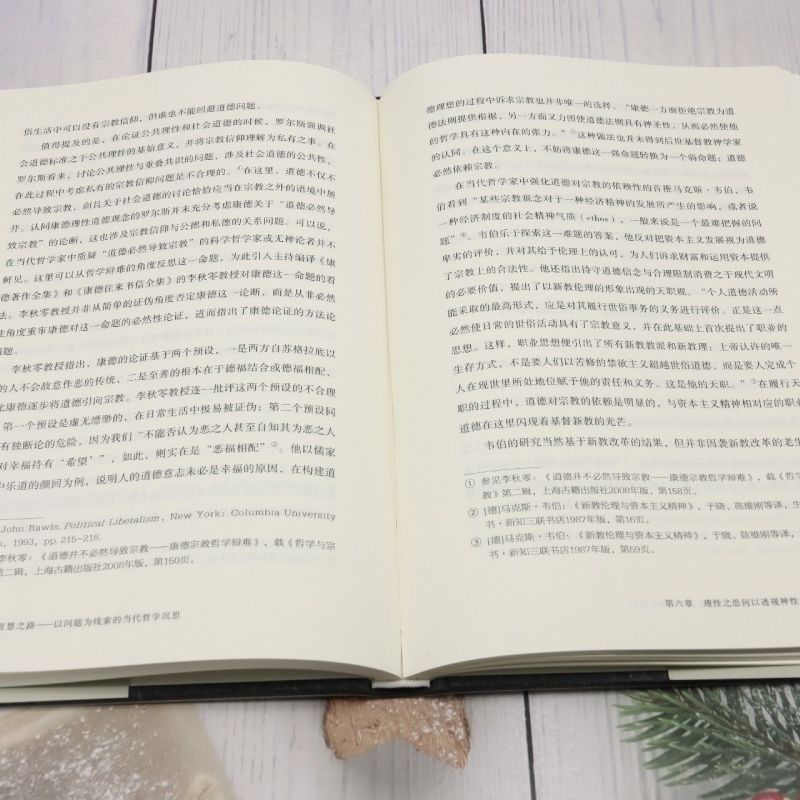 俗生活中可以没有宗教信仰，但谁也不能回避道德问题。
值得提及的是，在论证公共理性和社会道德的时候，罗尔斯强调社
会道德标准之于公共理性的基始意义，并将宗教信仰理解为私有之事。在
罗尔斯看来，讨论公共理性与重叠共识的问题，涉及社会道德的公共性，
在此过程中考虑私有的宗教信仰问题是不合理的。①在这里，道德不仅不
必然导致宗教，而且关于社会道德的讨论恰恰应当在宗教之外的语境中展
开。认同康德理性道德观念的罗尔斯并未充分考虑康德关于“道德必然导
致宗教”的论断，这也涉及宗教信仰与公德和私德的关系问题。可以说，
在当代哲学家中质疑“道德必然导致宗教”的科学哲学家或无神论者并不
鲜见。这里可以从哲学辩难的角度反思这一命题，为此引入主持编译《康
德著作全集》和《康德往来书信全集》的李秋零教授对康德这一命题的看
法。李秋零教授并非从简单的证伪角度否定康德这一论断，而是从非必然
性角度重审康德对这一命题的必然性论证，进而指出了康德论证的方法论
问题。
李秋零教授指出，康德的论证基于两个预设，一是西方自苏格拉底以
的人不会故意作恶的传统，二是至善的根本在于德福结合或德福相配，
此康德逐步将道德引向宗教。李秋零教授逐一批评这两个预设的不合理
第一个预设是虚无缥缈的，在日常生活中极易被证伪；第二个预设同
有独断论的危险，因为我们“不能否认为恶之人甚至自知其为恶之人
对幸福持有‘希望’”，如此，则实在是“恶福相配”②。他以儒家
中乐道的颜回为例，说明人的道德意志未必是幸福的原因，在构建道
John Rawls, Political Liberalism, New York: Columbia University
s, 1993, pp. 215-218.
李秋零：《道德并不必然导致宗教——康德宗教哲学辩难》，载《哲学与宗
第二辑，上海古籍出版社2008年版，第150页。
智慧之路——以问题为线索的当代哲学沉思
德理想的过程中诉求宗教也并非唯一的选择。“康德一方面拒绝宗教为道
德法则提供根据，另一方面又力图使道德法则具有神圣性，从而必然使他
的哲学具有这种内在的张力。”①这种做法也并未得到后世基督教神学家
的认同。在这个意义上，不妨将康德这一强命题转换为一个弱命题：道德
必然依赖宗教。
在当代哲学家中强化道德对宗教的依赖性的首推马克斯·韦伯，韦
伯看到“某些宗教观念对于一种经济精神的发展所产生的影响，或者说
一种经济制度的社会精神气质（ethos），一般来说是一个最难把握的问
题”②。韦伯乐于探索这一难题的答案，他反对把资本主义发展视为道德
卑劣的评价，并对其给予伦理上的认可，为人们诉求财富和运用资本提供
了宗教上的合法性。他还指出持守道德信念与合理限制消费之于现代文明
的必要价值，提出了以新教伦理的形象出现的天职观。“个人道德活动所
能采取的最高形式，应是对其履行世俗事务的义务进行评价。正是这一点
必然使日常的世俗活动具有了宗教意义，并在此基础上首次提出了职业的
思想。这样，职业思想便引出了所有新教教派和新教理：上帝认许的唯一
生存方式，不是要人们以苦修的禁欲主义超越世俗道德，而是要人完成个
人在现世里所处地位赋予他的责任和义务。这是他的天职。”③在履行天
职的过程中，道德对宗教的依赖是明显的，与资本主义精神相对应的职业
道德在这里闪现着基督新教的光芒。
韦伯的研究当然基于新教改革的结果，但并非因袭新教改革的老生
① 参见李秋零：《道德并不必然导致宗教——康德宗教哲学辩难》，载《哲学与宗
教》第二辑，上海古籍出版社2008年版，第158页。
② [德]马克斯·韦伯：《新教伦理与资本主义精神》，于晓、陈维纲等译，生
书·新知三联书店1987年版，第16页。
③ [德]马克斯·韦伯：《新教伦理与资本主义精神》，于晓、陈维纲等译，
书·新知三联书店1987年版，第59页。
第六章 理性之思何以透视神性